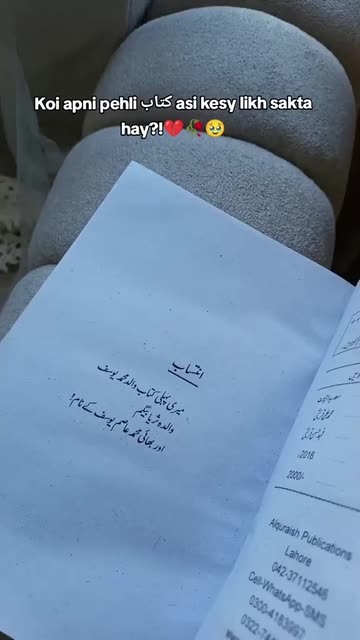 Koi apni pehli کتاب asi kesy likh sakta
hay?!💔🥀🥹
انتساب
میری پہلی کتاب والد محمد یوسف
والدہ ثریا بیگم
اور بھائی محمد عاصم یوسف کے نام!
2018
2000/-
Alquraish Publications
Lahore
042-37112546
Cell-WhatsApp-SMS
0300-4183997